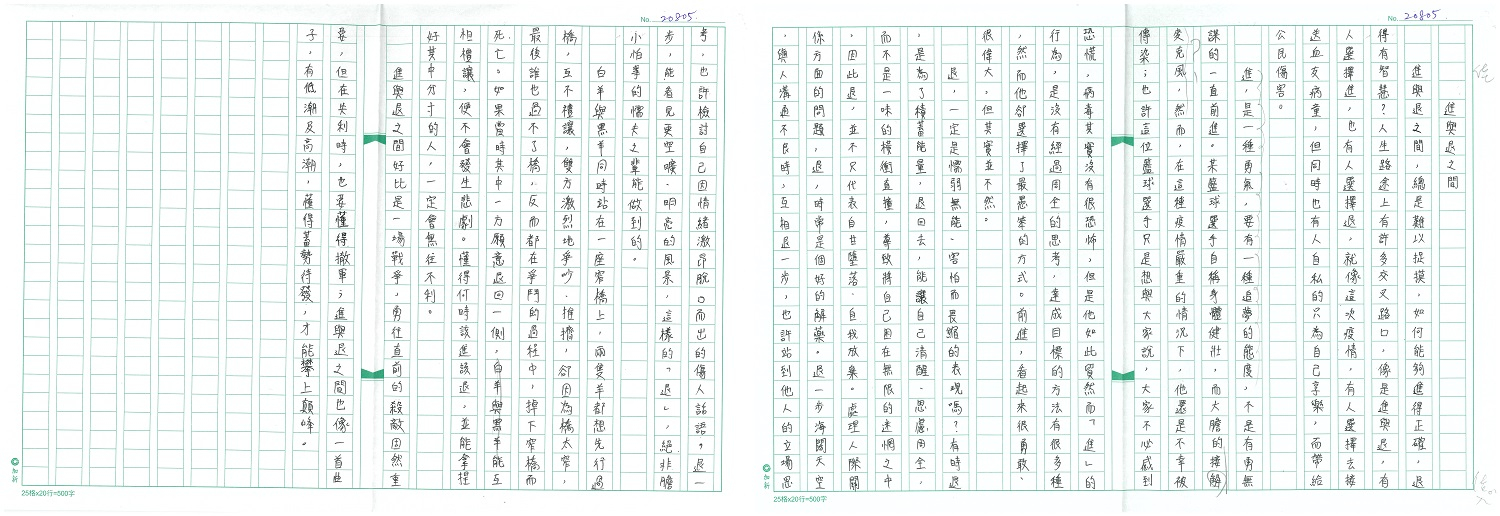 No. 20805
進與退之間
進與退之間，總是難以捉摸，如何能夠進得正確，退
得有智慧？人生路途上有許多交叉路口，像是進與退，有
人選擇進，也有人選擇退，就像這次疫情，有人選擇去接
送血友病童，但同時也有人自私的只為自己享樂，而帶給
公民傷害。
進，是一種勇氣，要有一種追夢的態度，不是有勇無
謀的一直前進。某籃球選手自稱身體健壯，而大膽的接觸
麥克風，然而，在這種疫情嚴重的情況下，他還是不幸被
傳染；也許這位籃球選手只是想與大家說，大家不必感到
恐慌，病毒其實沒有很恐怖，但是他如此貿然而「進」的
行為，是沒有經過周全的思考，達成目標的方法有很多種
，然而他卻選擇了最愚笨的方式。前進，看起來很勇敢、
很偉大，但其實並不然。
退，一定是懦弱無能、害怕而畏縮的表現嗎？有時退
，是為了積蓄能量，退回去，能讓自己清醒、思慮周全，
而不是一味的橫衝直撞，導致將自己困在無限的迷惘之中
，因此退，並不只代表自甘墮落、自我放棄。處理人際關
係方面的問題，退，時常是個好的解藥。退一步海闊天空
，與人溝通不良時，互相退一步，也許站到他人的立場思
25格x20行=500字
No. 20805
考，也許檢討自己因情緒激昂脫口而出的傷人話語，退一
步，能看見更空曠、明亮的風景，這樣的「退」，絕非膽
小怕事的懦夫之輩能做到的。
白羊與黑羊同時站在一座窄橋上，兩隻羊都想先行過
橋，互不禮讓，雙方激烈地爭吵、推擠，卻因為橋太窄，
最後誰也過不了橋，反而都在爭鬥的過程中，掉下窄橋而
死亡。如果當時其中一方願意退回一側，白羊與黑羊能互
相禮讓，便不會發生悲劇。懂得何時該進該退，並能拿捏
好其中分寸的人，一定會無往不利。
進與退之間好比是一場戰爭，勇往直前的殺敵固然重
要，但在失利時，也要懂得撤軍；進與退之間也像一首曲
子，有低潮及高潮，懂得蓄勢待發，才能攀上顛峰。
25格x20行=500字